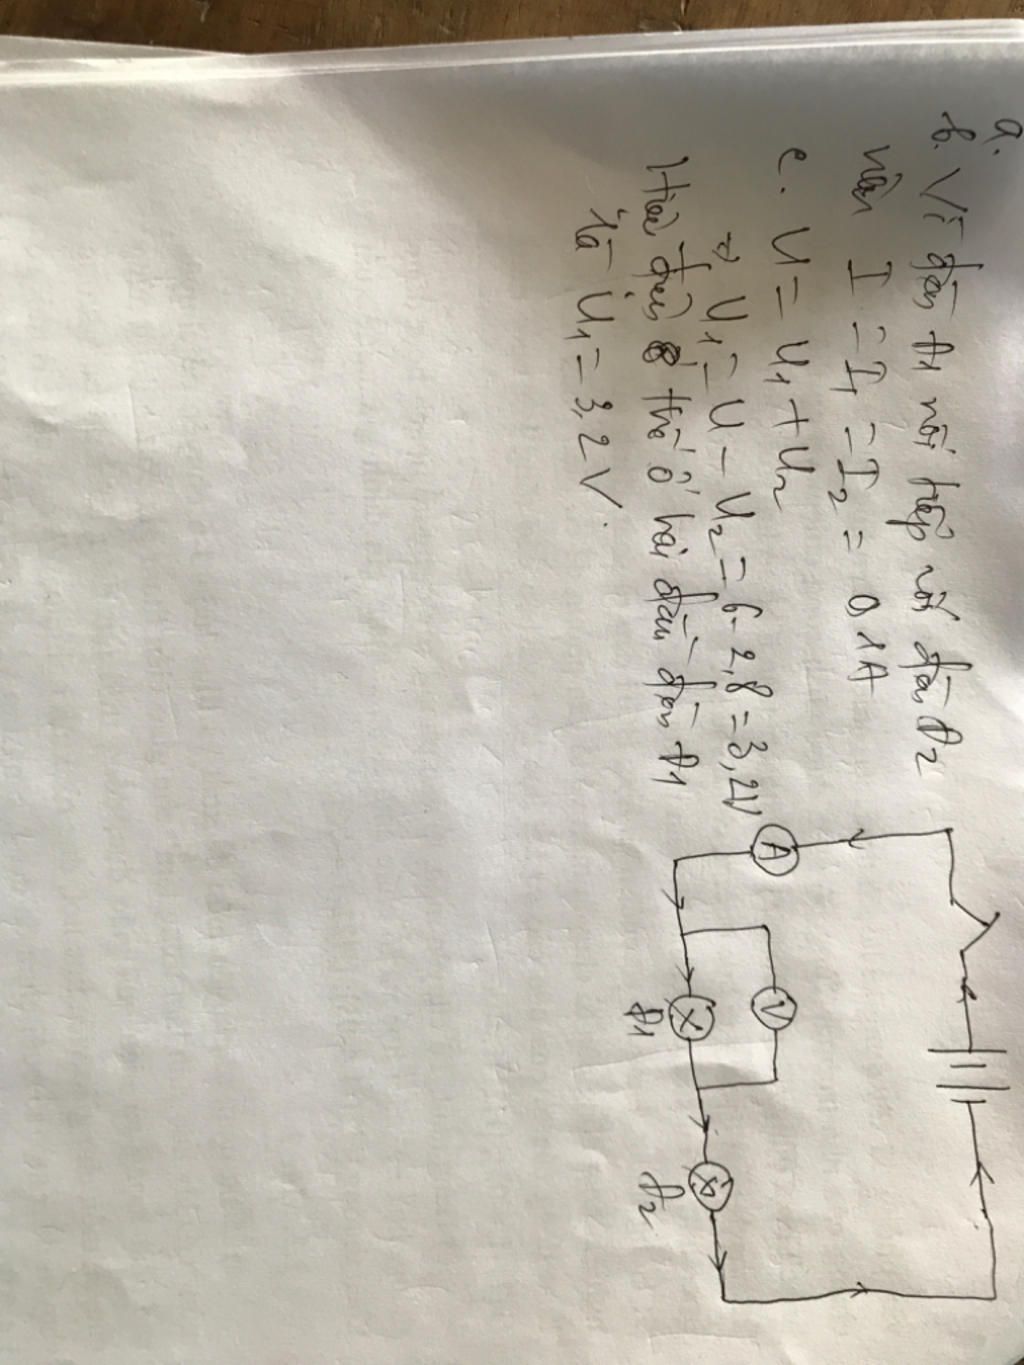 a.
b. Vì đèn Đ1 nối tiếp với đèn Đ2
nên I = I1 = I2 = 0,1A
c. U = U1 + U2
U1 = U - U2 = 6 - 2,8 = 3,2V
Hiệu điện thế ở hai đầu đèn Đ1
là U1 = 3,2V.
A
V
Đ1
Đ2